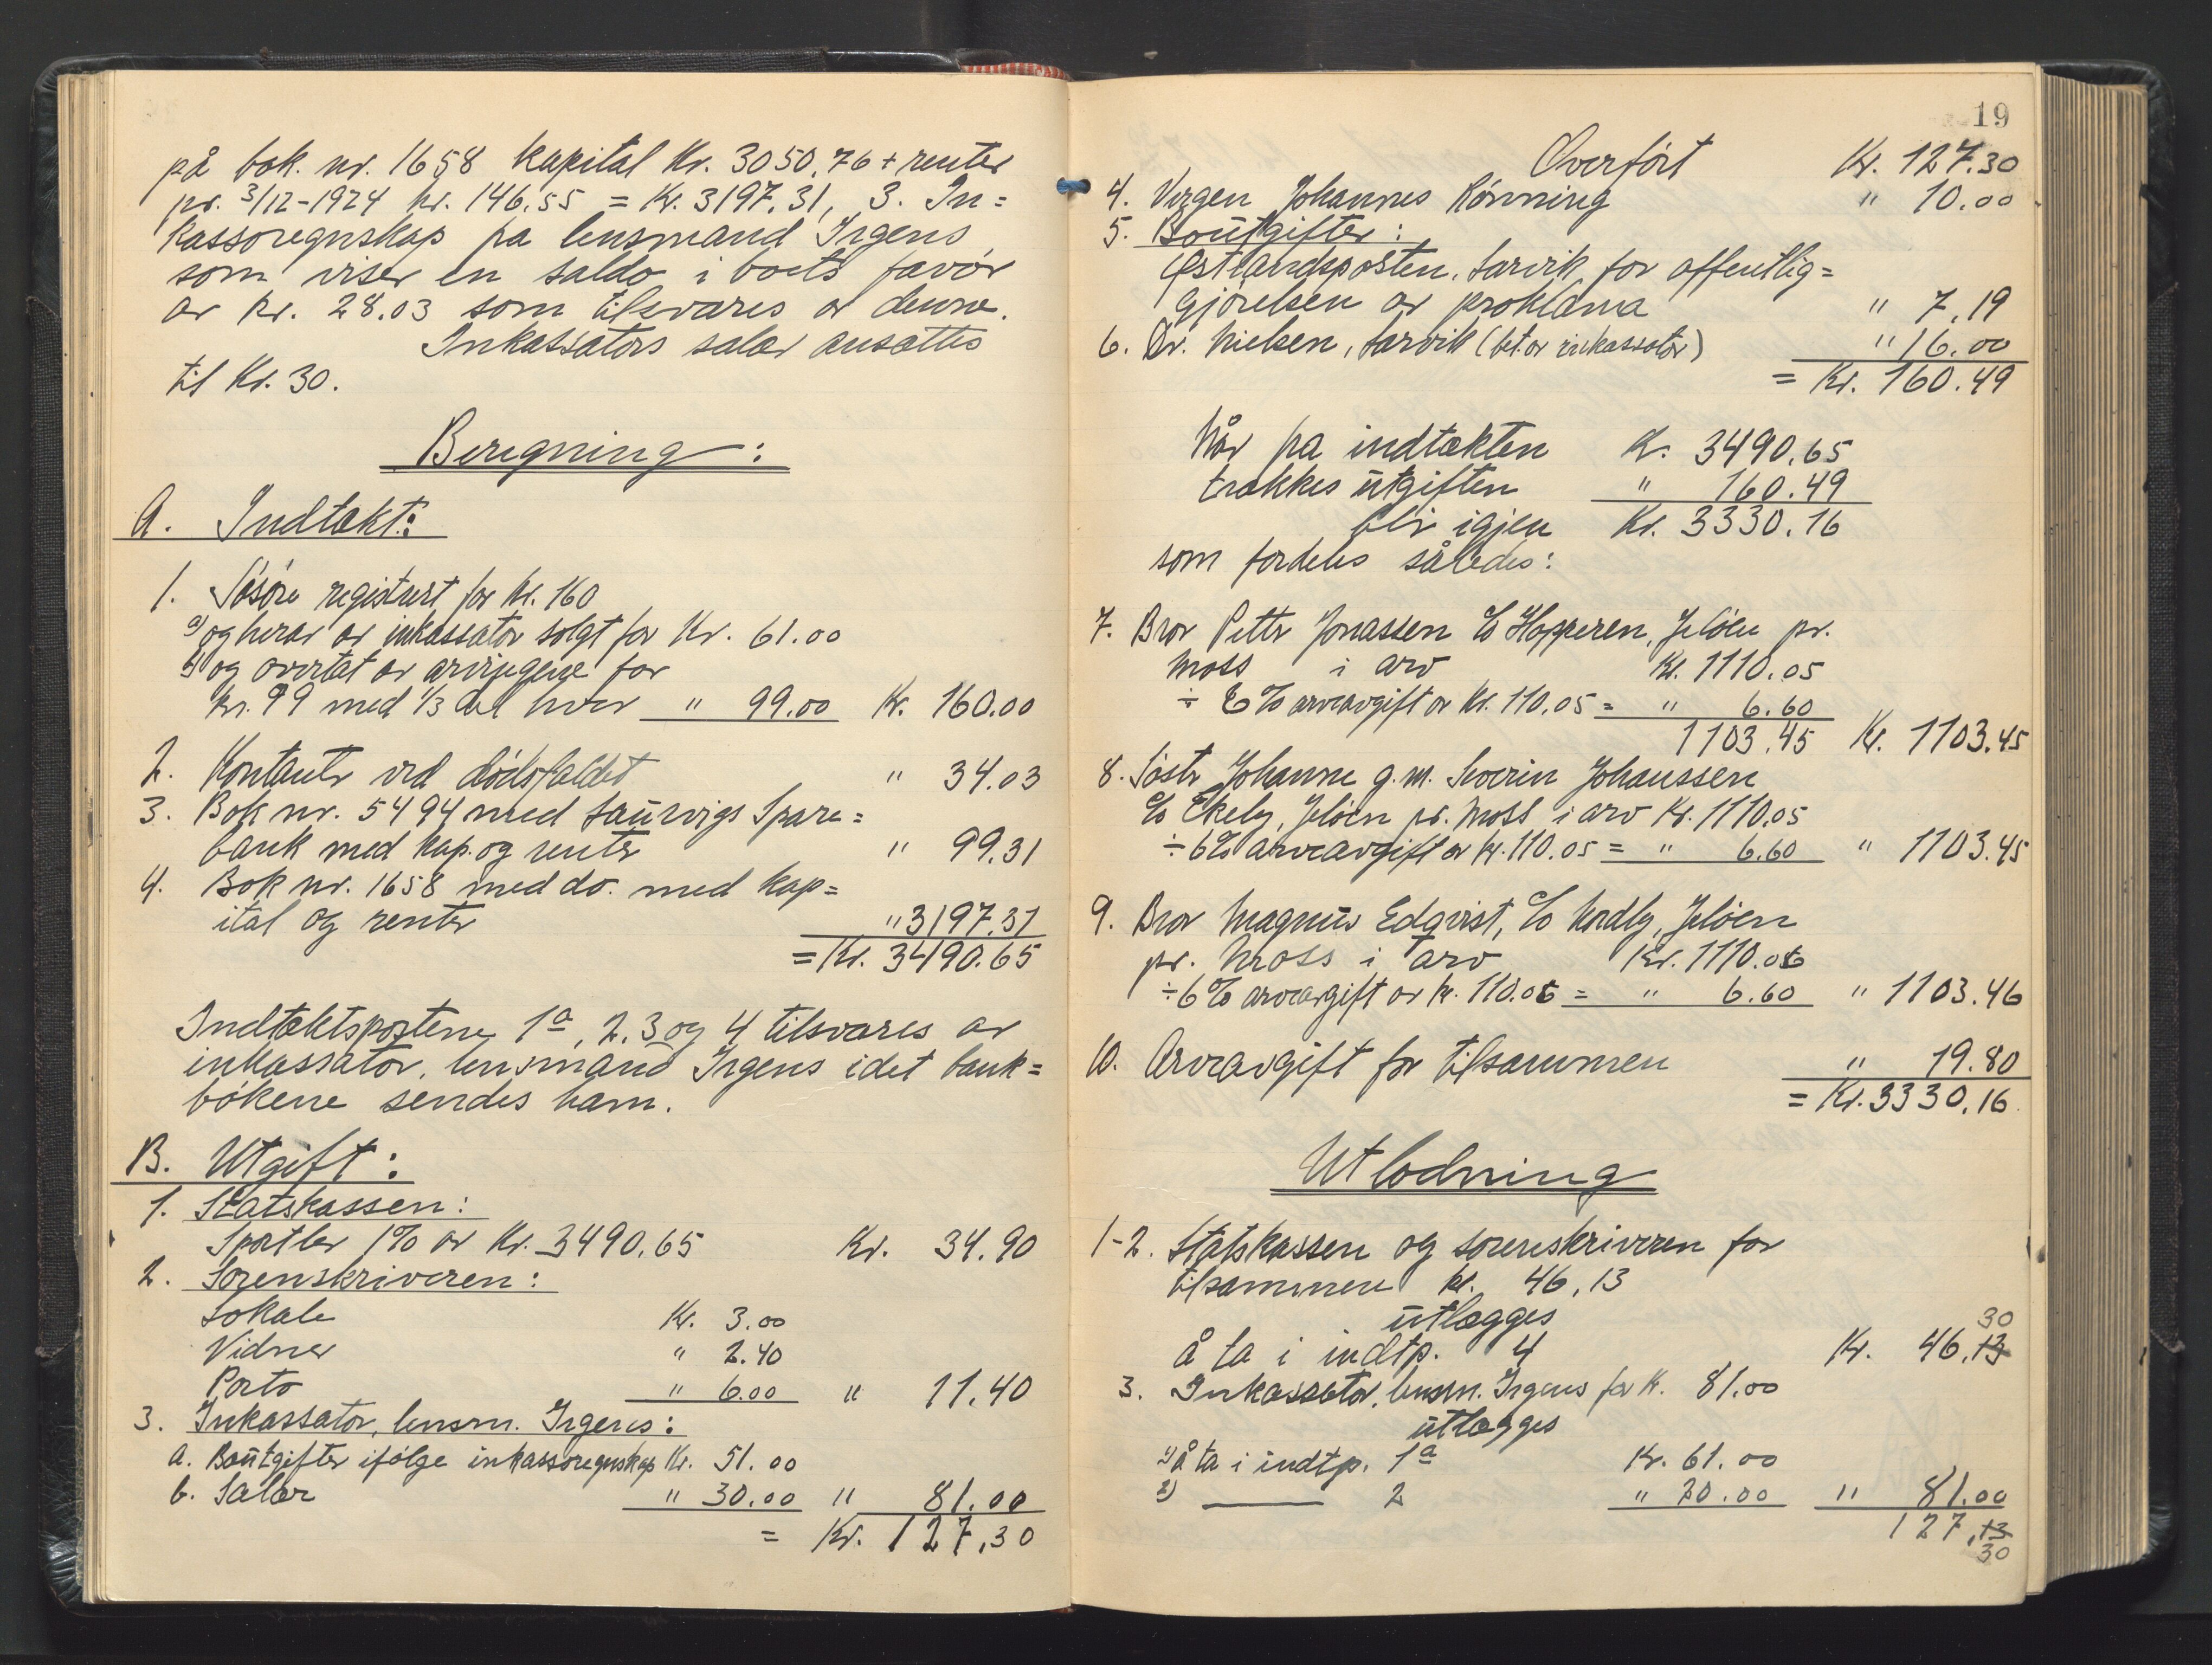 på bok. nr. 1658 kapital Kr. 3050,76 + renter
pr. 3/12-1924 kr. 146,55 = Kr. 3197,31, 3. In=
kassoregnskap fra lensmand Irgens,
som viser en saldo i boets favør
av kr. 28.03 som tilsvares av denne.
Inkassators salær ansættes
til Kr. 30.
Beregning:
A. Indtækt:
1. Løsøre registrert for Kr. 160
a) og herav av inkassator solgt for Kr. 61.00
b) og overtat av arvingene for
kr. 99 med 1/3 del hver " 99.00 Kr. 160.00
2. Kontanter ved dødsfaldet " 34.03
3. Bok nr. 5494 med Laurvigs Spare=
bank med kap. og renter " 99,31
4. Bok nr. 1658 med do. med kap=
ital og renter " 3197.31
= Kr. 3490.65
Indtæktspostene 1a, 2, 3 og 4 tilsvares av
inkassator, lensmand Irgens idet bank=
bøkene sendes ham.
B. Utgift:
1. Statskassen:
Sportler 1% av Kr. 3490,65 Kr. 34.90
2. Sorenskriveren:
Lokale Kr. 3.00
Vidner " 2.40
Porto " 6.00 " 11.40
3. Inkassator, lensm. Irgens:
a. Boutgifter ifølge inkassoregnskap Kr. 51.00
b. Salær " 30.00 " 81.00
= Kr. 127,30
19
Overført Kr. 127.30
4. Vergen Johannes Rønning " 10.00
5. Boutgifter:
Østlandsposten, Larvik, for offentlig=
gjørelsen av proklama " 7,19
6. Dr. Nielsen, Larvik (bet. av inkassator) " 16.00
= Kr. 160.49
Når fra indtækten Kr. 3490,65
trækkes utgiften " 160.49
blir igjen Kr. 3330.16
som fordeles således:
7. Bror Petter Jonassen c/o Hopperen, Jeløen pr.
Moss i arv Kr. 1110.05
÷ 6% arveavgift av Kr. 110.05 = " 6.60
1103.45 Kr. 1103.45
8. Søster Johanne g. m. Severin Johanssen
c/o Ekely, Jeløen pr. Moss i arv Kr. 1110,05
÷ 6% arveavgift av kr. 110.05 = " 6.60 " 1103.45
9. Bror Magnus Edqvist, c/o Nordly, Jeløen
pr. Moss i arv Kr. 1110.06
÷ 6% arveavgift av kr. 110.06 = " 6.60 " 1103.46
10. Arveavgift for tilsammen " 19.80
= Kr. 3330,16
Utlodning
1-2. Statskassen og sorenskriveren for
tilsammen kr. 46,13
utlægges 30
å ta i indtp. 4 Kr. 46,13
3. Inkassator, lensm. Irgens for Kr. 81.00
utlægges
1) å ta i indtp. 1a Kr. 61.00
2) —— 2 " 20.00 " 81.00
127,13
30